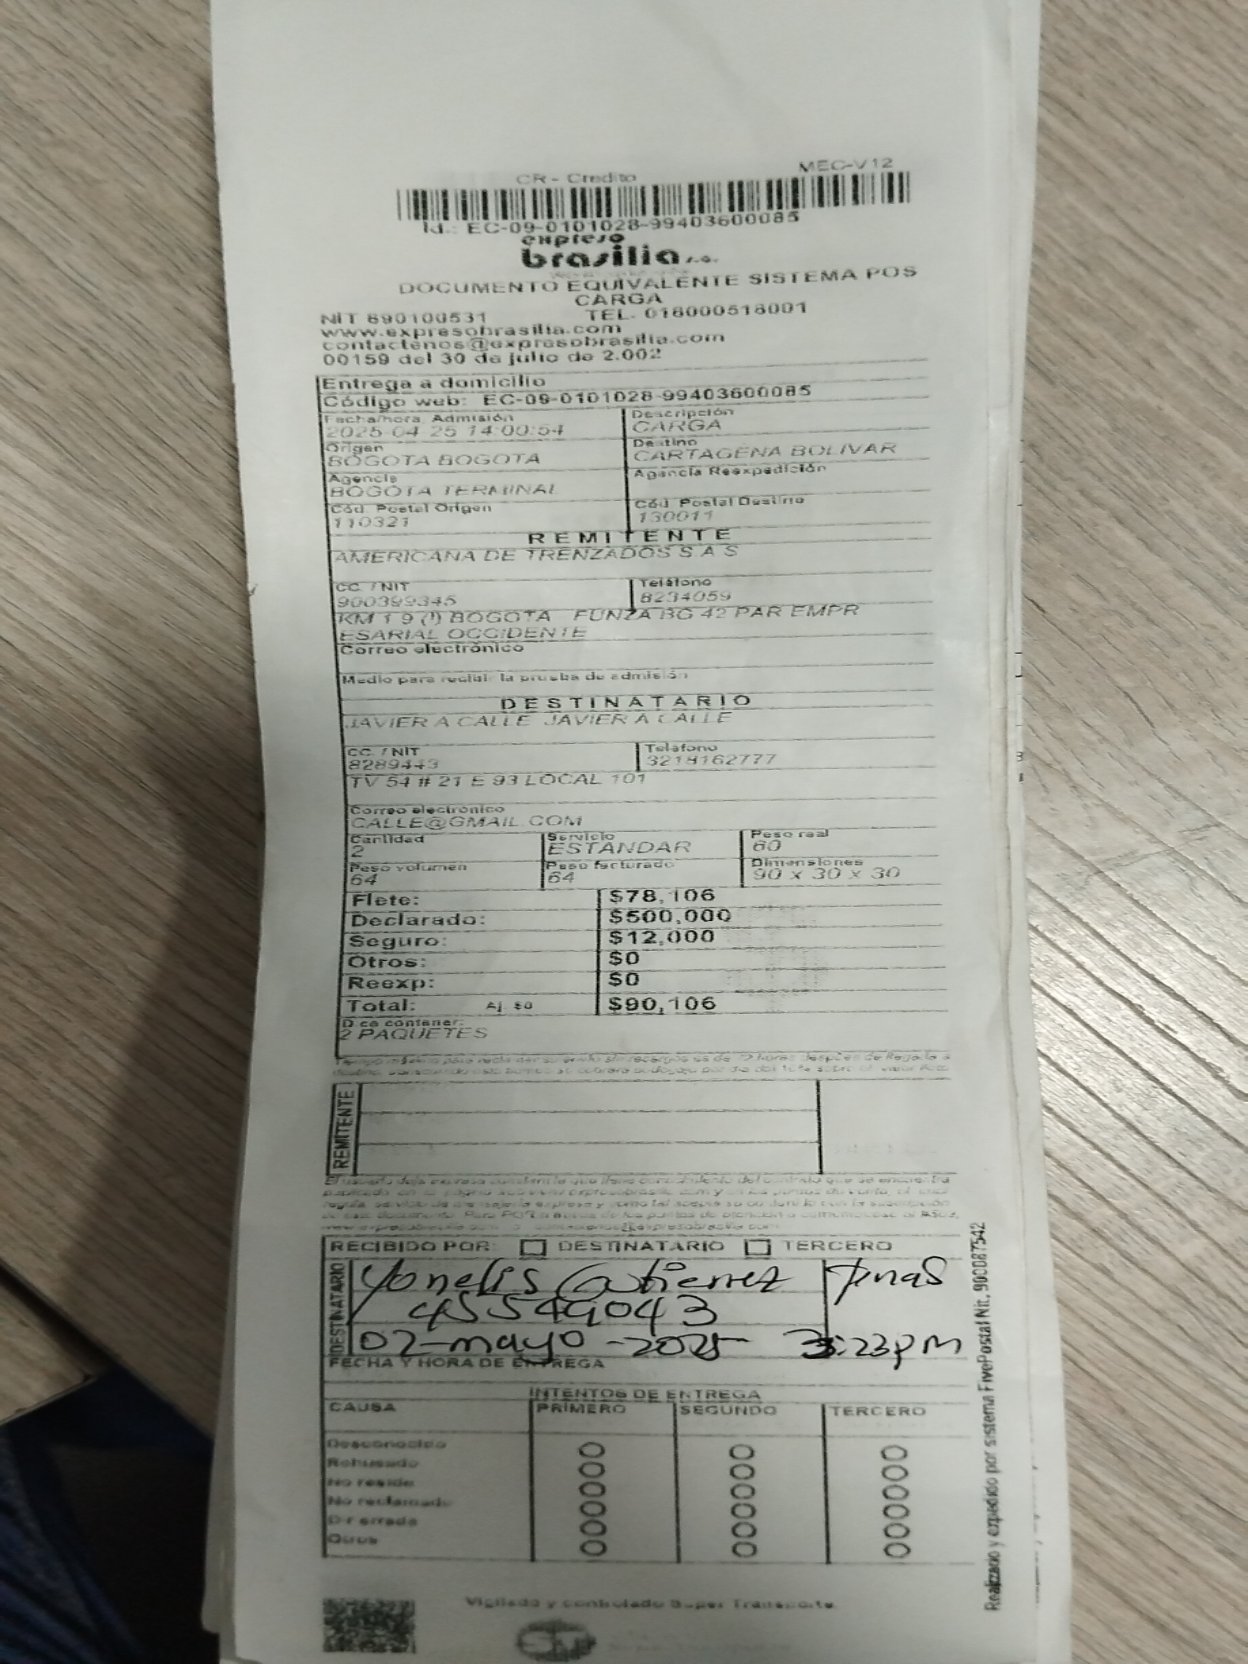 CR - Credito MEC-V12
Id.: EC-09-0101028-99403600085
expreso
brasilia s.a.
DOCUMENTO EQUIVALENTE SISTEMA POS
CARGA
NIT 890100531 TEL. 018000518001
www.expresobrasilia.com
contactenos@expresobrasilia.com
00159 del 30 de julio de 2.002
Entrega a domicilio
Código web: EC-09-0101028-99403600085
Fecha/hora Admisión Descripción
2025-04-25 14:00:54 CARGA
Origen Destino
BOGOTA BOGOTA CARTAGENA BOLIVAR
Agencia Agencia Reexpedición
BOGOTA TERMINAL
Cód. Postal Origen Cód. Postal Destino
110321 130011
REMITENTE
AMERICANA DE TRENZADOS S A S
CC. / NIT Teléfono
900399345 8234059
KM 1 9 (!) BOGOTA FUNZA BG 42 PAR EMPR
ESARIAL OCCIDENTE
Correo electrónico
Medio para recibir la prueba de admisión
DESTINATARIO
JAVIER A CALLE JAVIER A CALLE
CC. / NIT Teléfono
8289443 3218162777
TV 54 # 21 E 93 LOCAL 101
Correo electrónico
CALLE@GMAIL.COM
Cantidad Servicio Peso real
2 ESTANDAR 60
Peso volumen Peso facturado Dimensiones
64 64 90 x 30 x 30
Flete: $78,106
Declarado: $500,000
Seguro: $12,000
Otros: $0
Reexp: $0
Total: Aj. $0 $90,106
Dice contener:
2 PAQUETES
REMITENTE
RECIBIDO POR: DESTINATARIO TERCERO
DESTINATARIO
Yonelis Gutierrez
45549043
02-mayo-2025 3:23pm
FECHA Y HORA DE ENTREGA
INTENTOS DE ENTREGA
CAUSA PRIMERO SEGUNDO TERCERO
Desconocido
Rehusado
No reside
No reclamado
Dir errada
Otros
Vigilado y controlado Super Transporte.
Realizado y expedido por sistema FivePostal Nit. 900087542